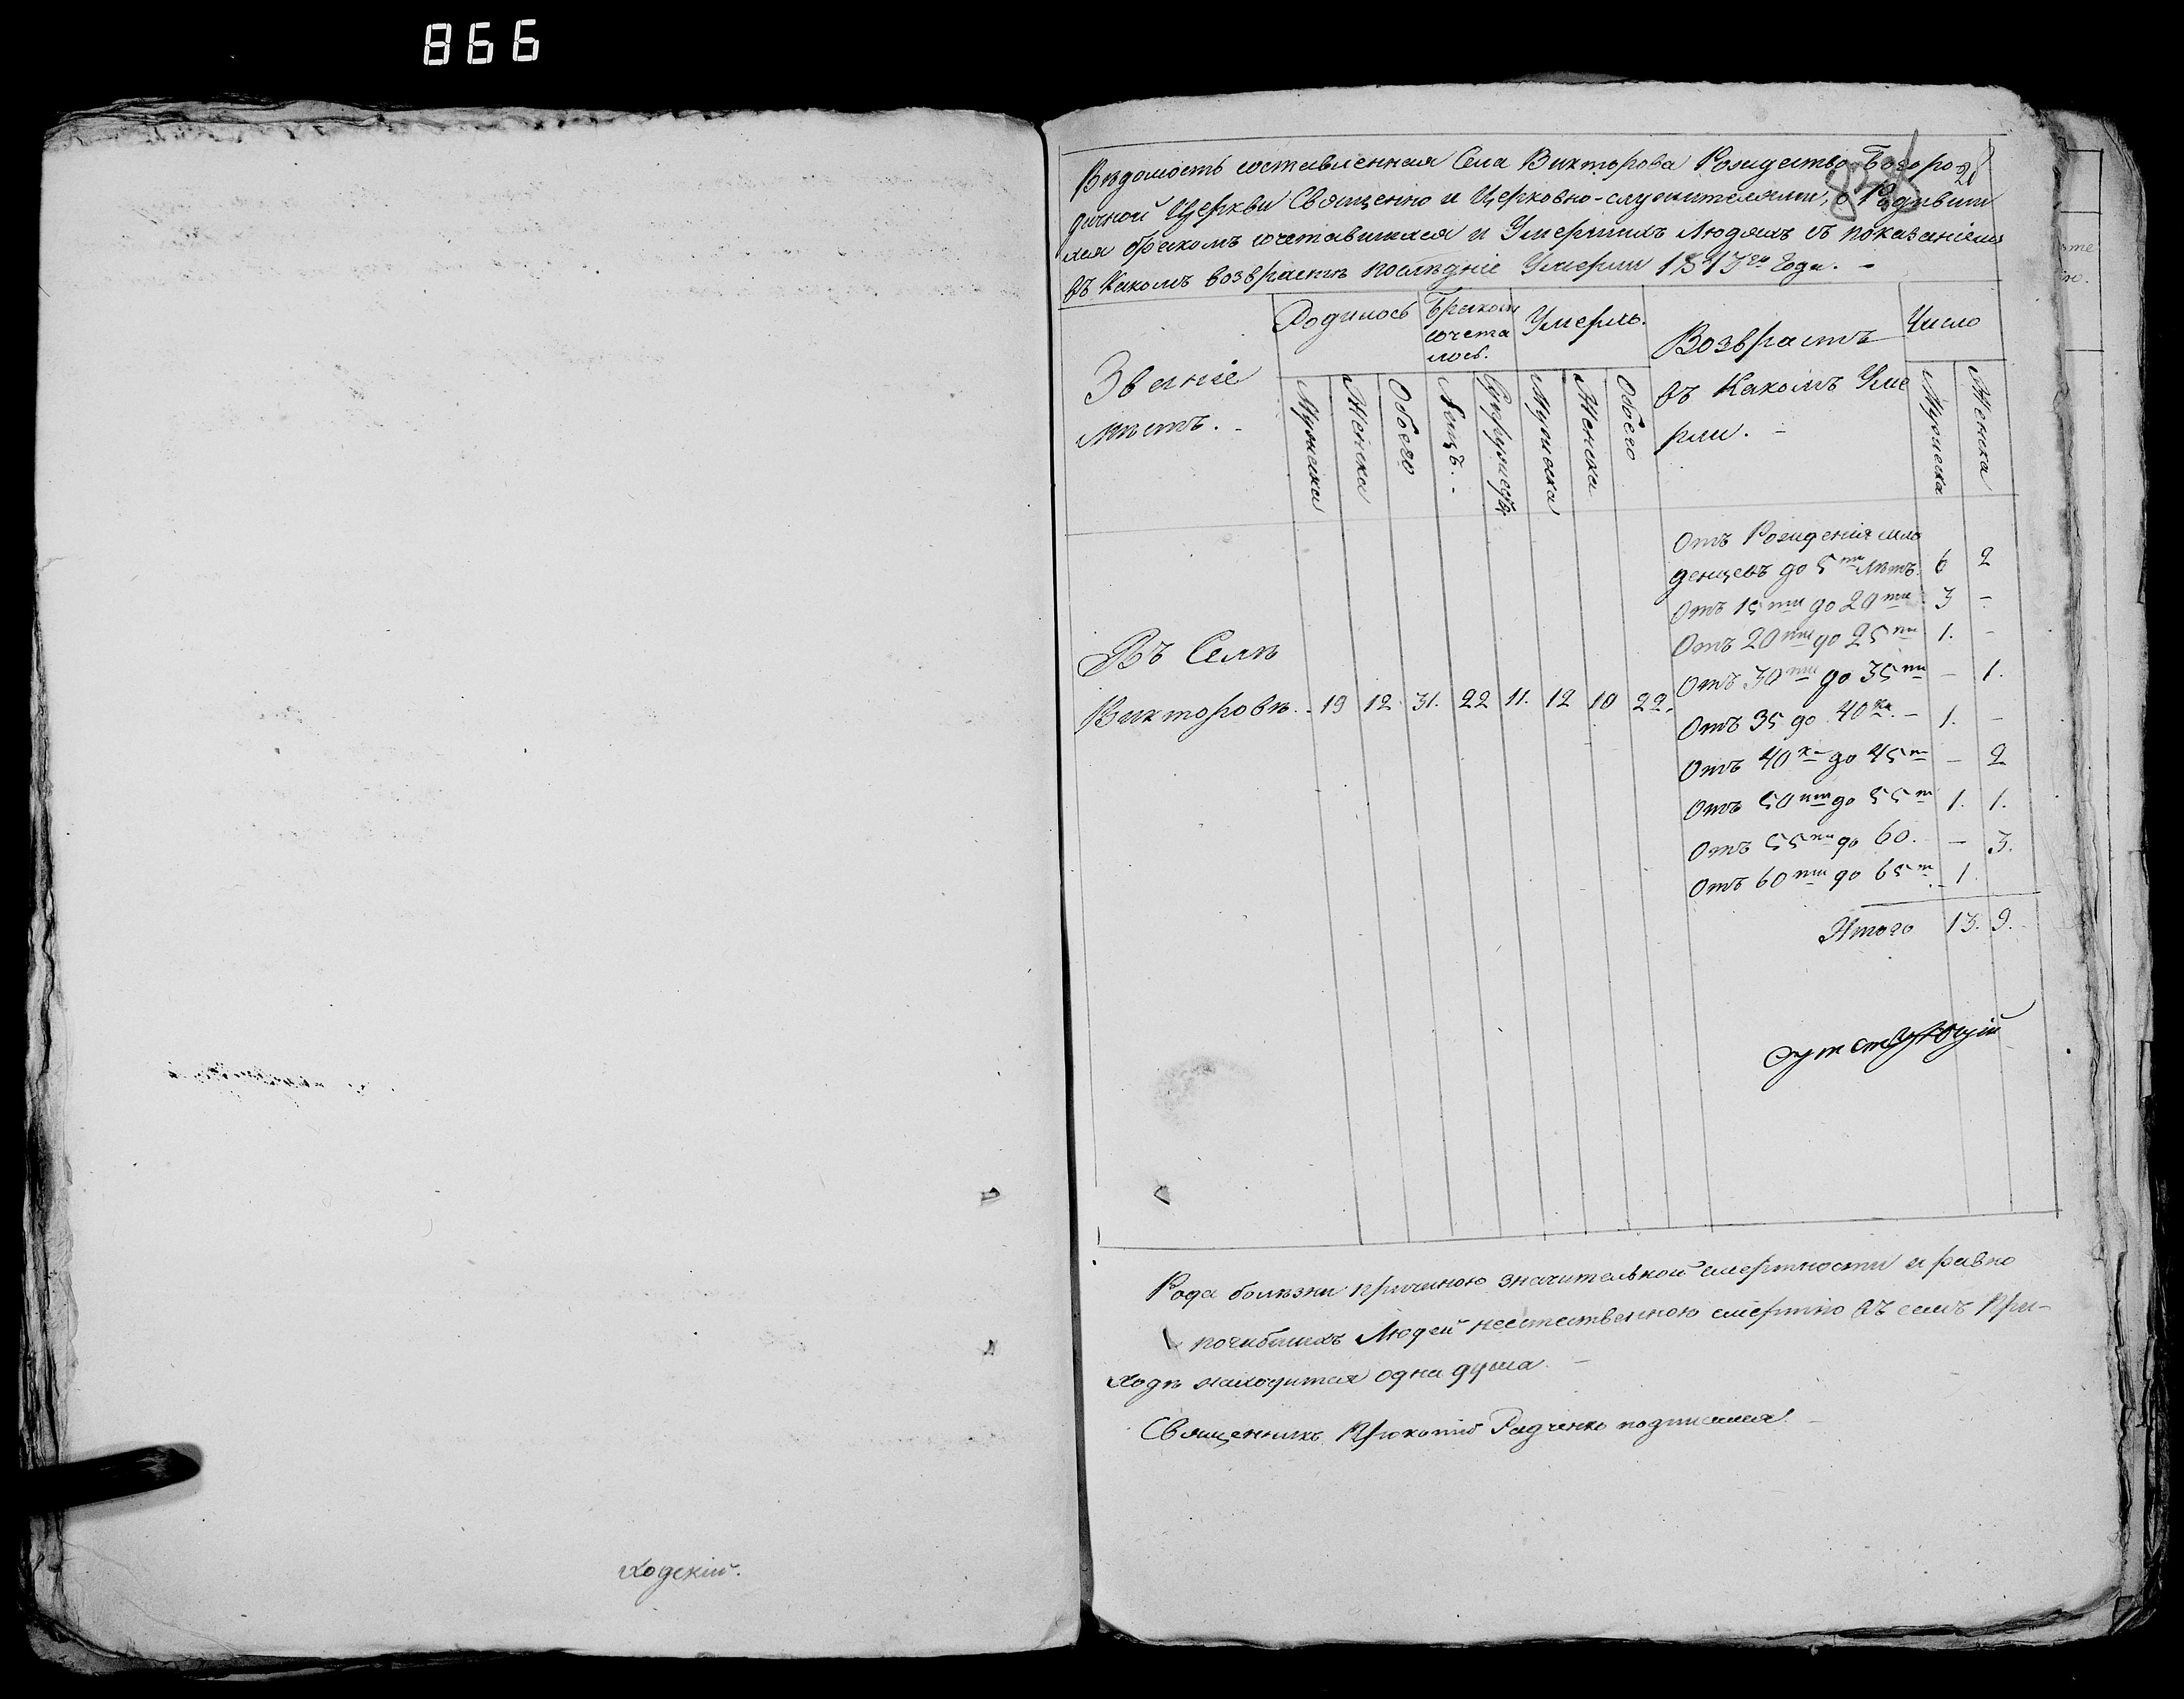 866
Ведомость составленная Села Викторова Рождество-Богоро-
дичной Церкви Священно и Церковно-служителями, о Родивши
хся бракомъ сочетавшихся и Умершихъ Людяхъ съ показаніемъ
въ Какомъ возврасте последніе Умерли 1813го Года. -
Званіе
местъ. -
Родилось
Бракомъ
сочета
лось.
Умерло.
Возврастъ
въ Какомъ Уме
рли. -
Число
Мужеска
Женска
Обоего
Лицъ. -
Супружествъ
Мужеска
Женска
Обоего
Мужеска
Женска
Въ Селѣ
Викторовѣ. - 19 12 31. 22 11. 12 10 22.
Отъ Рожденія мла
денцевъ до 5ти Лѣтъ. 6 2
Отъ 15ти до 20ти 3 -
Отъ 20ти до 25ти 1. -
Отъ 30ти до 35ти - 1.
Отъ 35 до 40ка. - 1. -
Отъ 40ка до 45ти - 2
Отъ 50ти до 55ти 1. 1.
Отъ 55ти до 60. - 3.
Отъ 60ти до 65ти - 1
Итого 13. 9.
Рода болѣзни причиною значительной смертности и равно
погибшихъ Людей неестественною смертію въ семъ При-
ходѣ находится одна душа. -
Священникъ Прокопій Радченко подписался. -
ходскій.